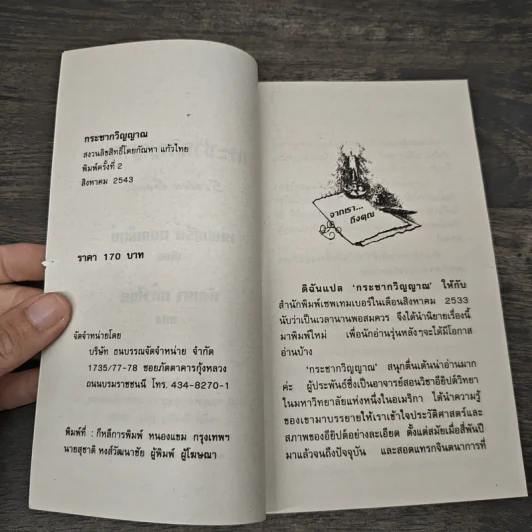 กระชากวิญญาณ
สงวนลิขสิทธิ์โดยกัณหา แก้วไทย
พิมพ์ครั้งที่ 2
สิงหาคม 2543
ราคา 170 บาท
จัดจำหน่ายโดย
บริษัท ธนบรรณจัดจำหน่าย จำกัด
1735/77-78 ซอยภัตตาคารกุ้งหลวง
ถนนบรมราชชนนี โทร. 434-8270-1
พิมพ์ที่ : กีหลีการพิมพ์ หนองแขม กรุงเทพฯ
นายสุชาติ หงส์วัฒนาชัย ผู้พิมพ์ ผู้โฆษณา
จากเรา...
ถึงคุณ
ดิฉันแปล 'กระชากวิญญาณ' ให้กับ
สำนักพิมพ์เซพเทมเบอร์ในเดือนสิงหาคม 2533
นับว่าเป็นเวลานานพอสมควร จึงได้นำนิยายเรื่องนี้
มาพิมพ์ใหม่ เพื่อนักอ่านรุ่นหลังๆจะได้มีโอกาส
อ่านบ้าง
'กระชากวิญญาณ' สนุกตื่นเต้นน่าอ่านมาก
ค่ะ ผู้ประพันธ์ซึ่งเป็นอาจารย์สอนวิชาอียิปต์วิทยา
ในมหาวิทยาลัยแห่งหนึ่งในอเมริกา ได้นำความรู้
ของเขามาบรรยายให้เราเข้าใจประวัติศาสตร์และ
สภาพของอียิปต์อย่างละเอียด ตั้งแต่สมัยเมื่อสี่พันปี
มาแล้วจนถึงปัจจุบัน และสอดแทรกจินตนาการที่